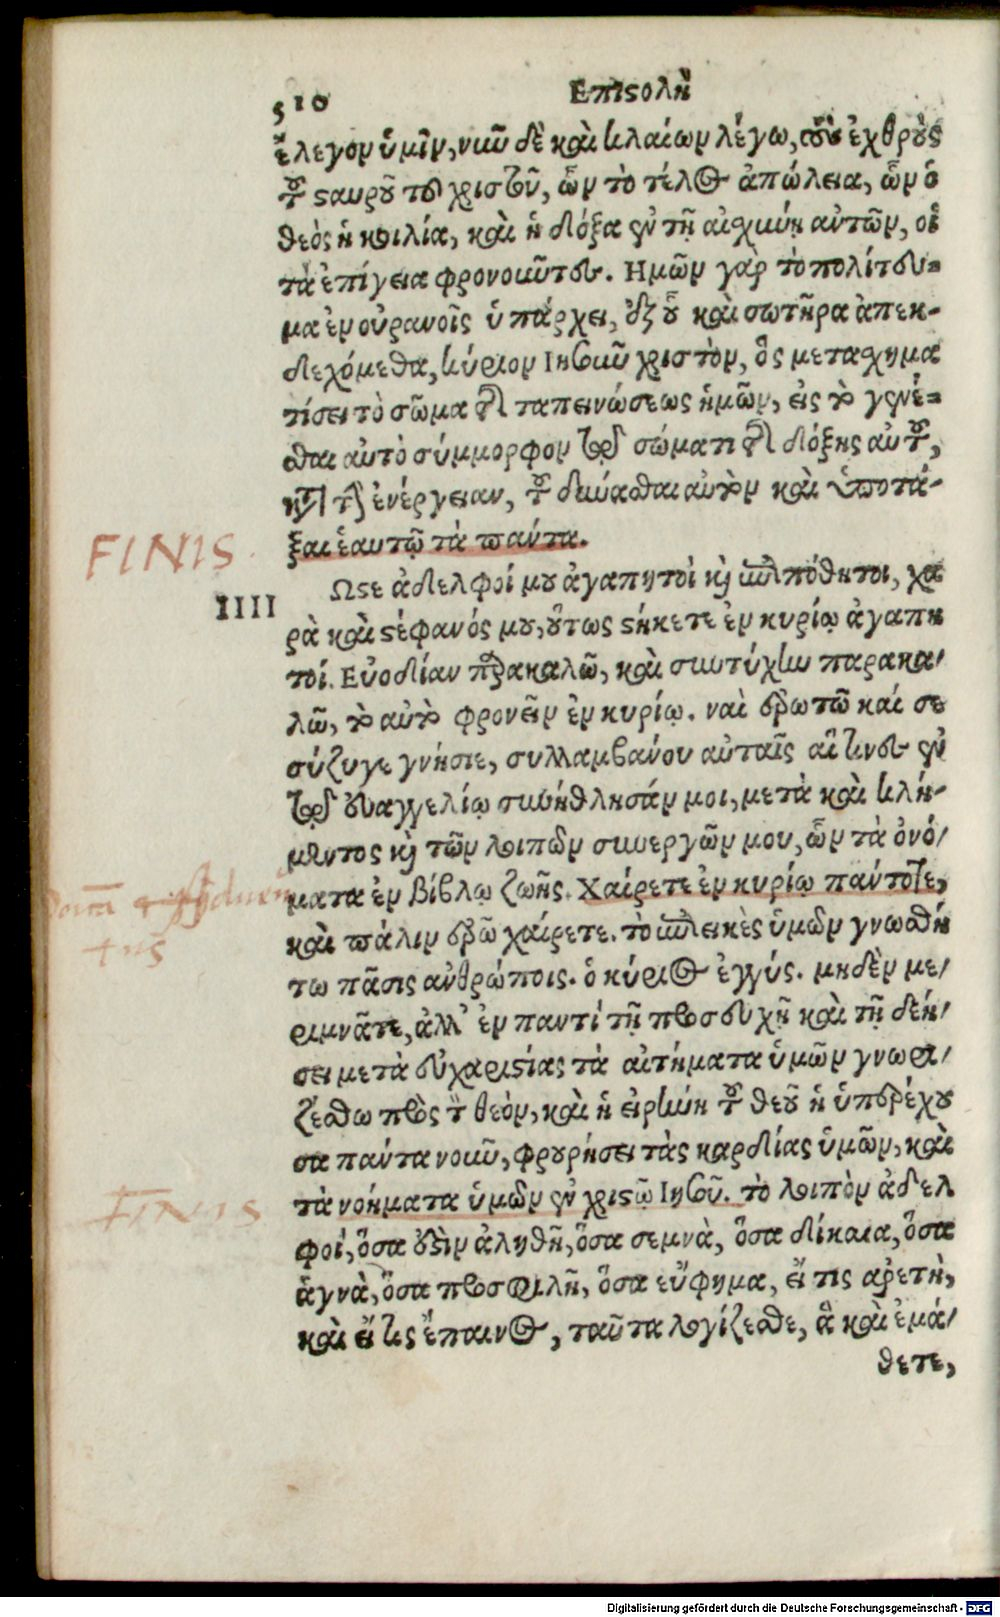 510 Επιϛολὴ
ἔλεγον ὑμῖν, νιῦ δὲ καὶ κλαίων λέγω, τοὺς ἐχθροὺς
τοῦ ϛαυροῦ τοῦ χριστοῦ, ὧν τὸ τέλος ἀπώλεια, ὧν ὁ
θεὸς ἡ κοιλία, καὶ ἡ δόξα ἐν τῇ αἰσχύνῃ αὐτῶν, οἱ
τὰ ἐπίγεια φρονοῦντες. Ημῶν γὰρ τὸ πολίτευ-
μα ἐν οὐρανοῖς ὑπάρχει, ἐξ οὗ καὶ σωτῆρα ἀπεκ-
δεχόμεθα, κύριον Ιησοῦν χριστὸν, ὃς μετασχημα
τίσει τὸ σῶμα τῆς ταπεινώσεως ἡμῶν, εἰς τὸ γενέ-
σθαι αὐτὸ σύμμορφον τῷ σώματι τῆς δόξης αὐτοῦ,
κατὰ τὴν ἐνέργειαν, τοῦ δύνασθαι αὐτὸν καὶ ὑποτά-
ξαι ἑαυτῷ τὰ πάντα.
FINIS
IIII
Ωϛε ἀδελφοί μου ἀγαπητοὶ καὶ ἐπιπόθητοι, χα
ρὰ καὶ ϛέφανός μου, οὕτως ϛήκετε ἐν κυρίῳ ἀγαπη
τοί. Εὐοδίαν παρακαλῶ, καὶ συντύχην παρακα/
λῶ, τὸ αὐτὸ φρονεῖν ἐν κυρίῳ. ναὶ ἐρωτῶ καί σε
σύζυγε γνήσιε, συλλαμβάνου αὐταῖς αἵτινες ἐν
τῷ εὐαγγελίῳ συνήθλησάν μοι, μετὰ καὶ κλή-
μεντος καὶ τῶν λοιπῶν συνεργῶν μου, ὧν τὰ ὀνό/
ματα ἐν βίβλῳ ζωῆς. Χαίρετε ἐν κυρίῳ πάντοτε,
καὶ πάλιν ἐρῶ χαίρετε. τὸ ἐπιεικὲς ὑμῶν γνωσθή
τω πᾶσις ἀνθρώποις. ὁ κύριος ἐγγύς. μηδὲν με/
ριμνᾶτε, ἀλλ' ἐν παντί τῇ προσευχῇ καὶ τῇ δεή/
σει μετὰ εὐχαριϛίας τὰ αἰτήματα ὑμῶν γνωρι/
ζέσθω πρὸς τὸν θεὸν, καὶ ἡ εἰρήνη τοῦ θεοῦ ἡ ὑπερέχου
σα πάντα νοῦν, φρουρήσει τὰς καρδίας ὑμῶν, καὶ
τὰ νοήματα ὑμῶν ἐν χριϛῷ Ιησοῦ. τὸ λοιπὸν ἀδελ
FINIS
φοί, ὅσα ἐϛὶν ἀληθῆ, ὅσα σεμνὰ, ὅσα δίκαια, ὅσα
ἁγνὰ, ὅσα προσφιλῆ, ὅσα εὔφημα, εἴ τις ἀρετὴ,
καὶ εἴ τις ἔπαινος, ταῦτα λογίζεσθε, ἃ καὶ ἐμά/
θετε,
Digitalisierung gefördert durch die Deutsche Forschungsgemeinschaft - DFG